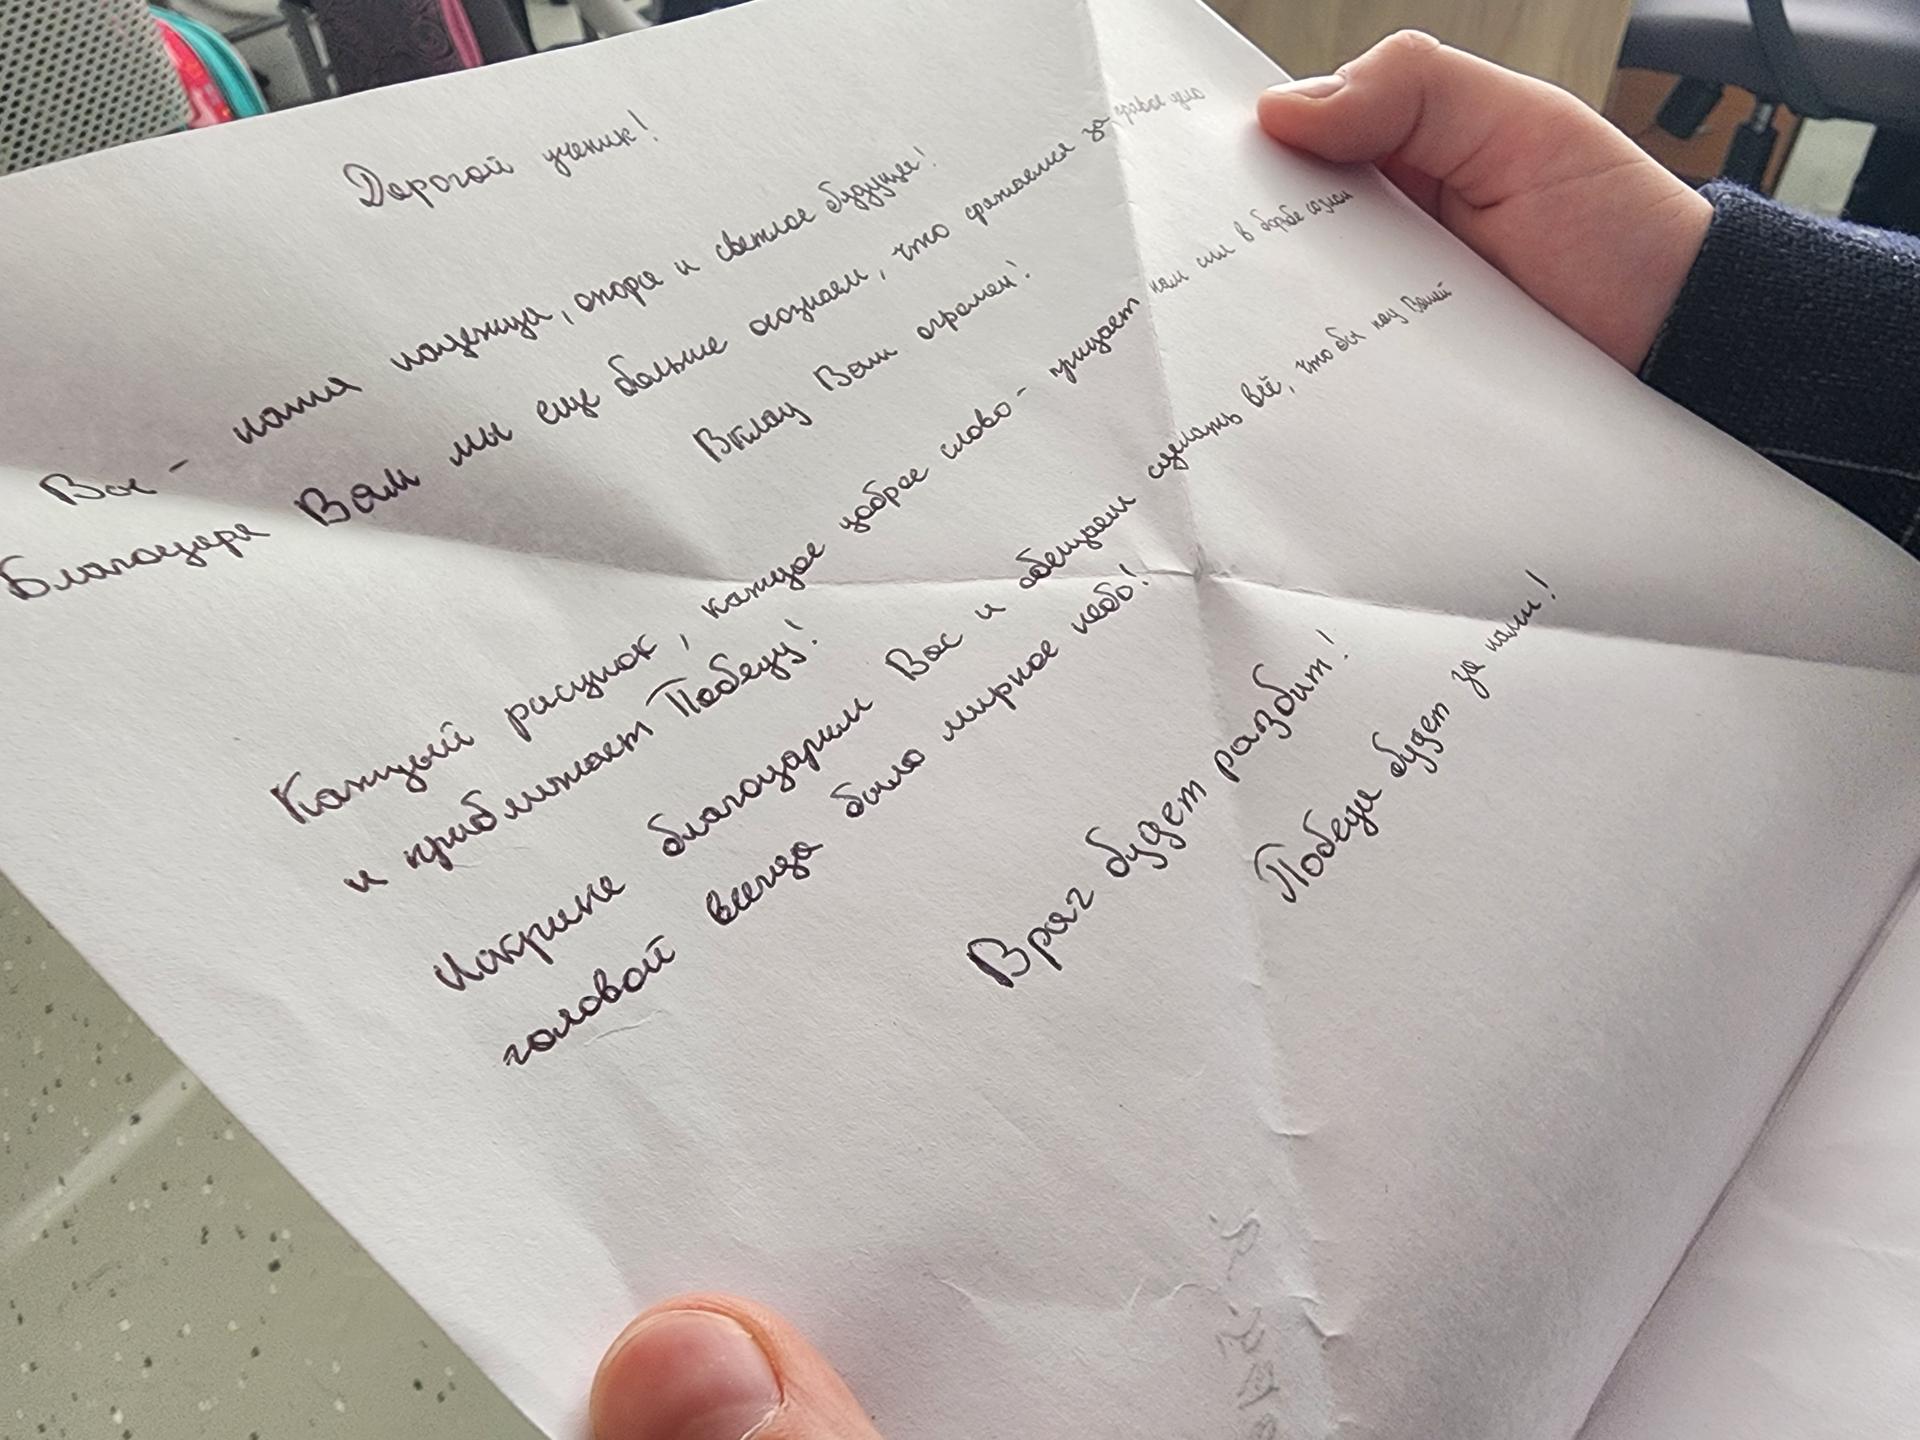 Дорогой ученик!
Вы - наша надежда, опора и светлое будущее!
Благодаря Вам мы еще больше осознаем, что сражаемся за правое дело
Вклад Ваш огромен!
Каждый рисунок, каждое доброе слово - придает нам сил в борьбе
и приближает Победу!
Искрине благодарим Вас и обещаем сделать всё, что бы над Вашей
головой всегда было мирное небо!
Враг будет разбит!
Победа будет за нами!